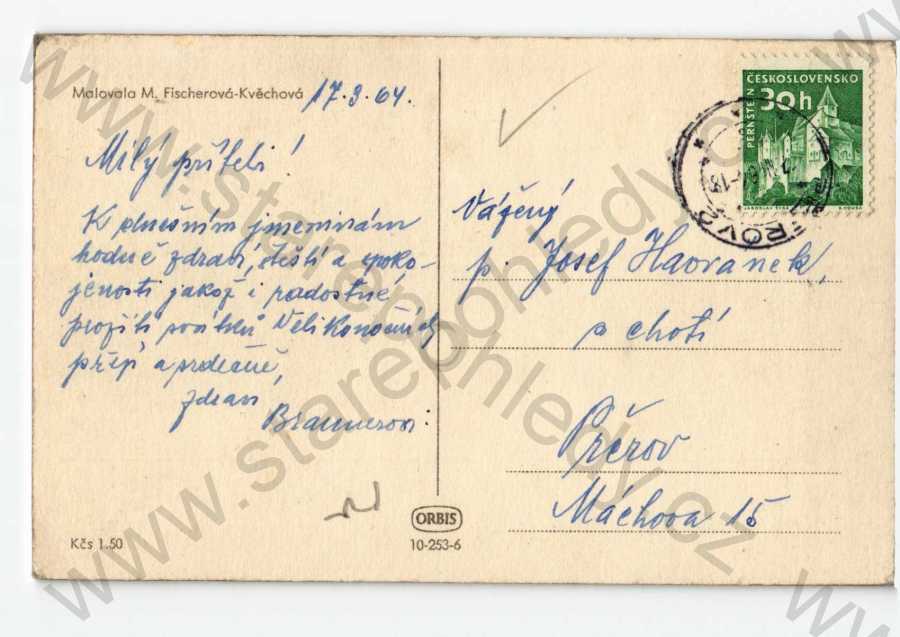 Malovala M. Fischerová-Kvěchová
17.3.64.
Milý příteli!
K dnešním jmeninám
hodně zdraví, štěstí a spoko-
jenosti jakož i radostné
prožití svátků Velikonočních
přejí a srdečně,
zdraví
Braunerovi.
Kčs 1.50
ORBIS
10-253-6
ČESKOSLOVENSKO
30h
PERNŠTEJN
Vážený
p. Josef Havranek,
s chotí
Přerov
Máchova 15
www.starepohledy.cz